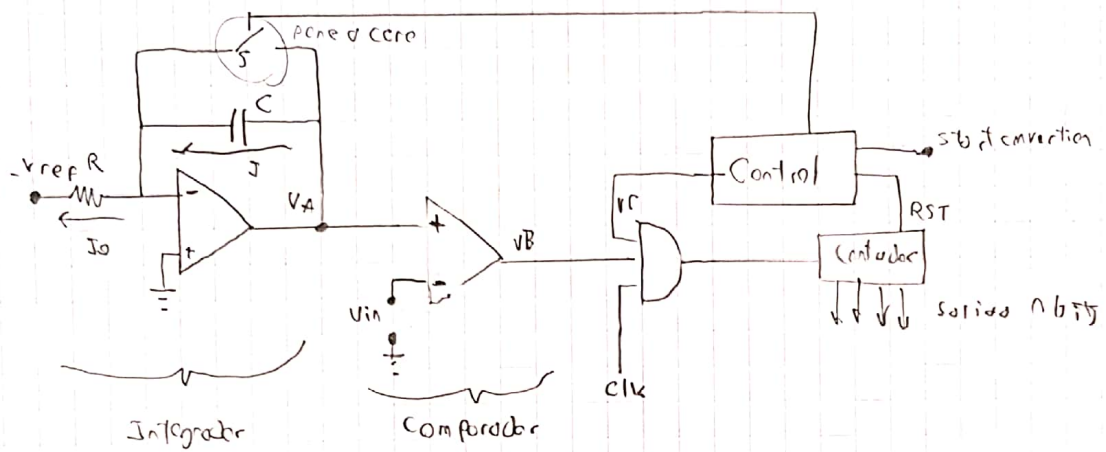 pone a cero
S
C
I
-Vref
R
Io
-
+
VA
+
-
VB
Vin
VC
Clk
Control
Start convertion
RST
Contador
salida n bits
Integrador
Comparador